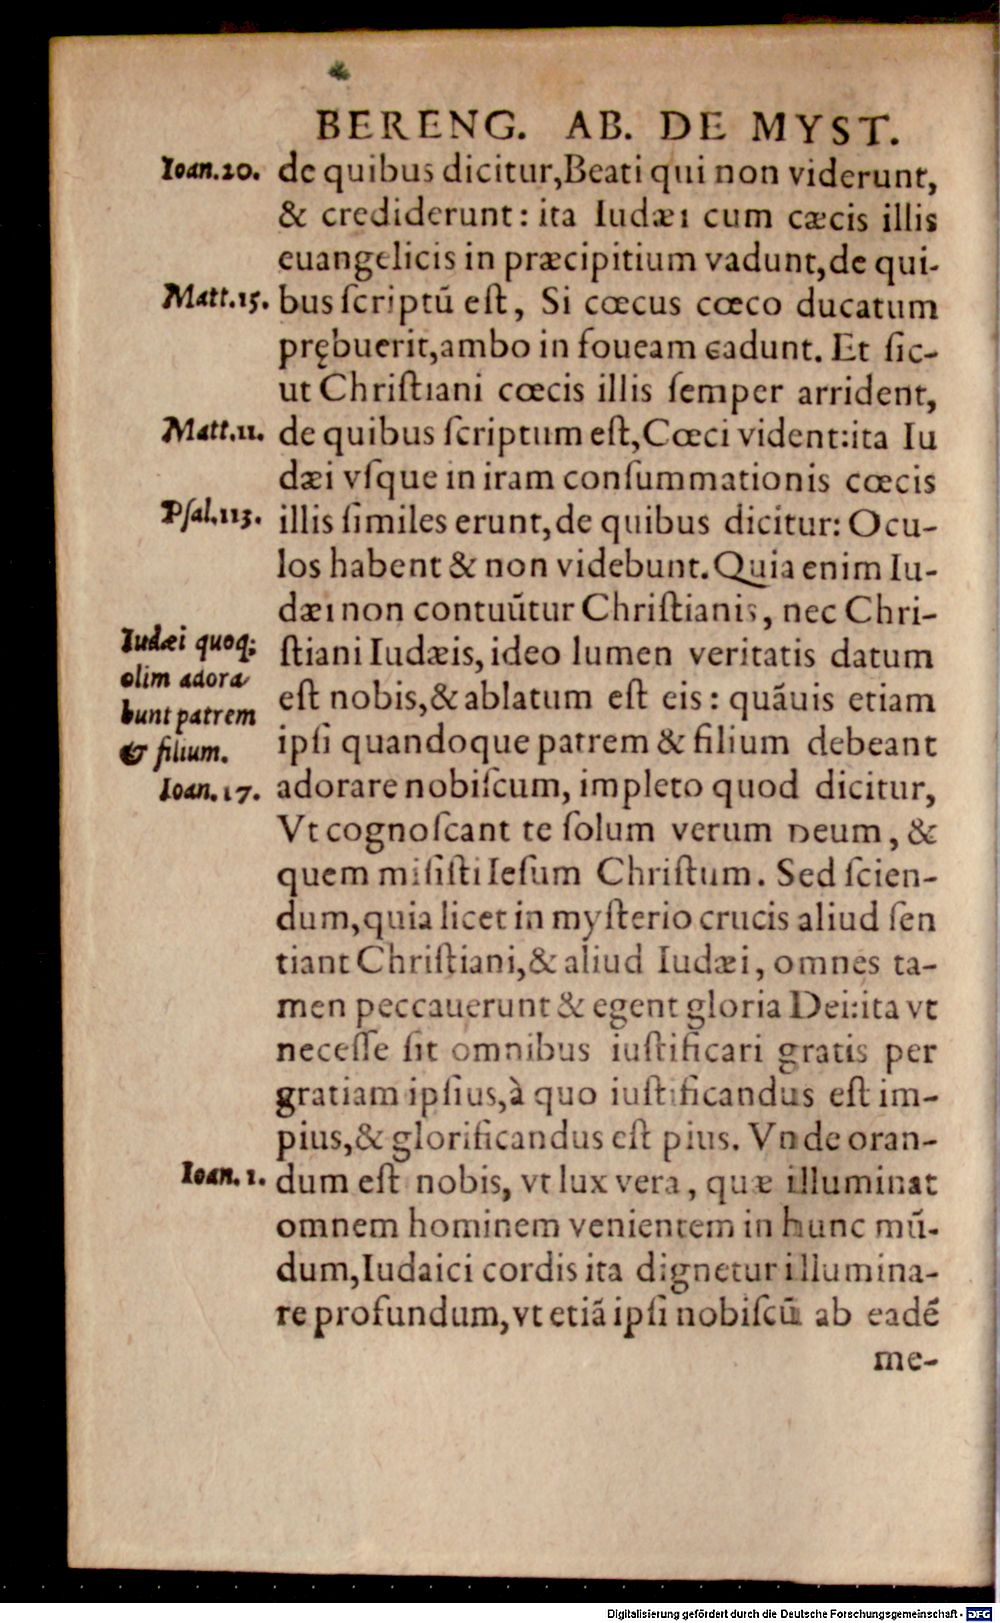 BERENG. AB. DE MYST.
Ioan.20. de quibus dicitur,Beati qui non viderunt,
& crediderunt: ita Iudæi cum cæcis illis
euangelicis in præcipitium vadunt,de qui-
Matt.15. bus ſcriptū eſt, Si cœcus cœco ducatum
prębuerit,ambo in foueam cadunt. Et ſic-
ut Chriſtiani cœcis illis ſemper arrident,
Matt.11. de quibus ſcriptum eſt,Cœci vident:ita Iu
dæi vſque in iram conſummationis cœcis
Pſal.113. illis ſimiles erunt,de quibus dicitur: Ocu-
los habent & non videbunt. Quia enim Iu-
dæi non contuūtur Chriſtianis, nec Chri-
Iudæi quoq; ſtiani Iudæis, ideo lumen veritatis datum
olim adora
bunt patrem eſt nobis,& ablatum eſt eis: quāuis etiam
& filium. ipſi quandoque patrem & filium debeant
Ioan.17. adorare nobiſcum, impleto quod dicitur,
Vt cognoſcant te ſolum verum Deum, &
quem miſiſti Ieſum Chriſtum. Sed ſcien-
dum,quia licet in myſterio crucis aliud ſen
tiant Chriſtiani,& aliud Iudæi, omnes ta-
men peccauerunt & egent gloria Dei:ita vt
neceſſe ſit omnibus iuſtificari gratis per
gratiam ipſius,à quo iuſtificandus eſt im-
pius,& glorificandus eſt pius. Vnde oran-
Ioan.1. dum eſt nobis, vt lux vera, quæ illuminat
omnem hominem venientem in hunc mū-
dum,Iudaici cordis ita dignetur illumina-
re profundum,vt etiā ipſi nobiſcū ab eadē
me-
Digitalisierung gefördert durch die Deutsche Forschungsgemeinschaft - DFG